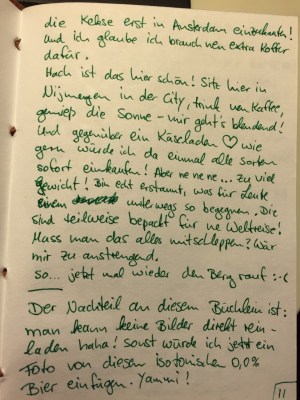 die Kekse erst in Amsterdam einzukaufen!
und ich glaube ich brauch nen extra Koffer
dafür.
Hach ist das hier schön! Sitz hier in
Nijmegen in der City, trink ven Kaffee,
genieß die Sonne - mir geht's blendend!
Und gegenüber ein Käseladen ♡ wie
gern würde ich da einmal alle Sorten
sofort einkaufen! Aber ne ne ne... zu viel
Gewicht! Bin echt erstaunt, was für Leute
einem unterwegs so begegnen. Die
sind teilweise bepackt für ne Weltreise!
Muss man das alles mitschleppen? Wär
mir zu anstrengend.
so... jetzt mal wieder den Berg rauf :-(
Der Nachteil an diesem Büchlein ist:
man kann keine Bilder direkt rein-
laden haha! sonst würde ich jetzt ein
Foto von diesem isotonischen 0,0%
Bier einfügen. Yammi!
11